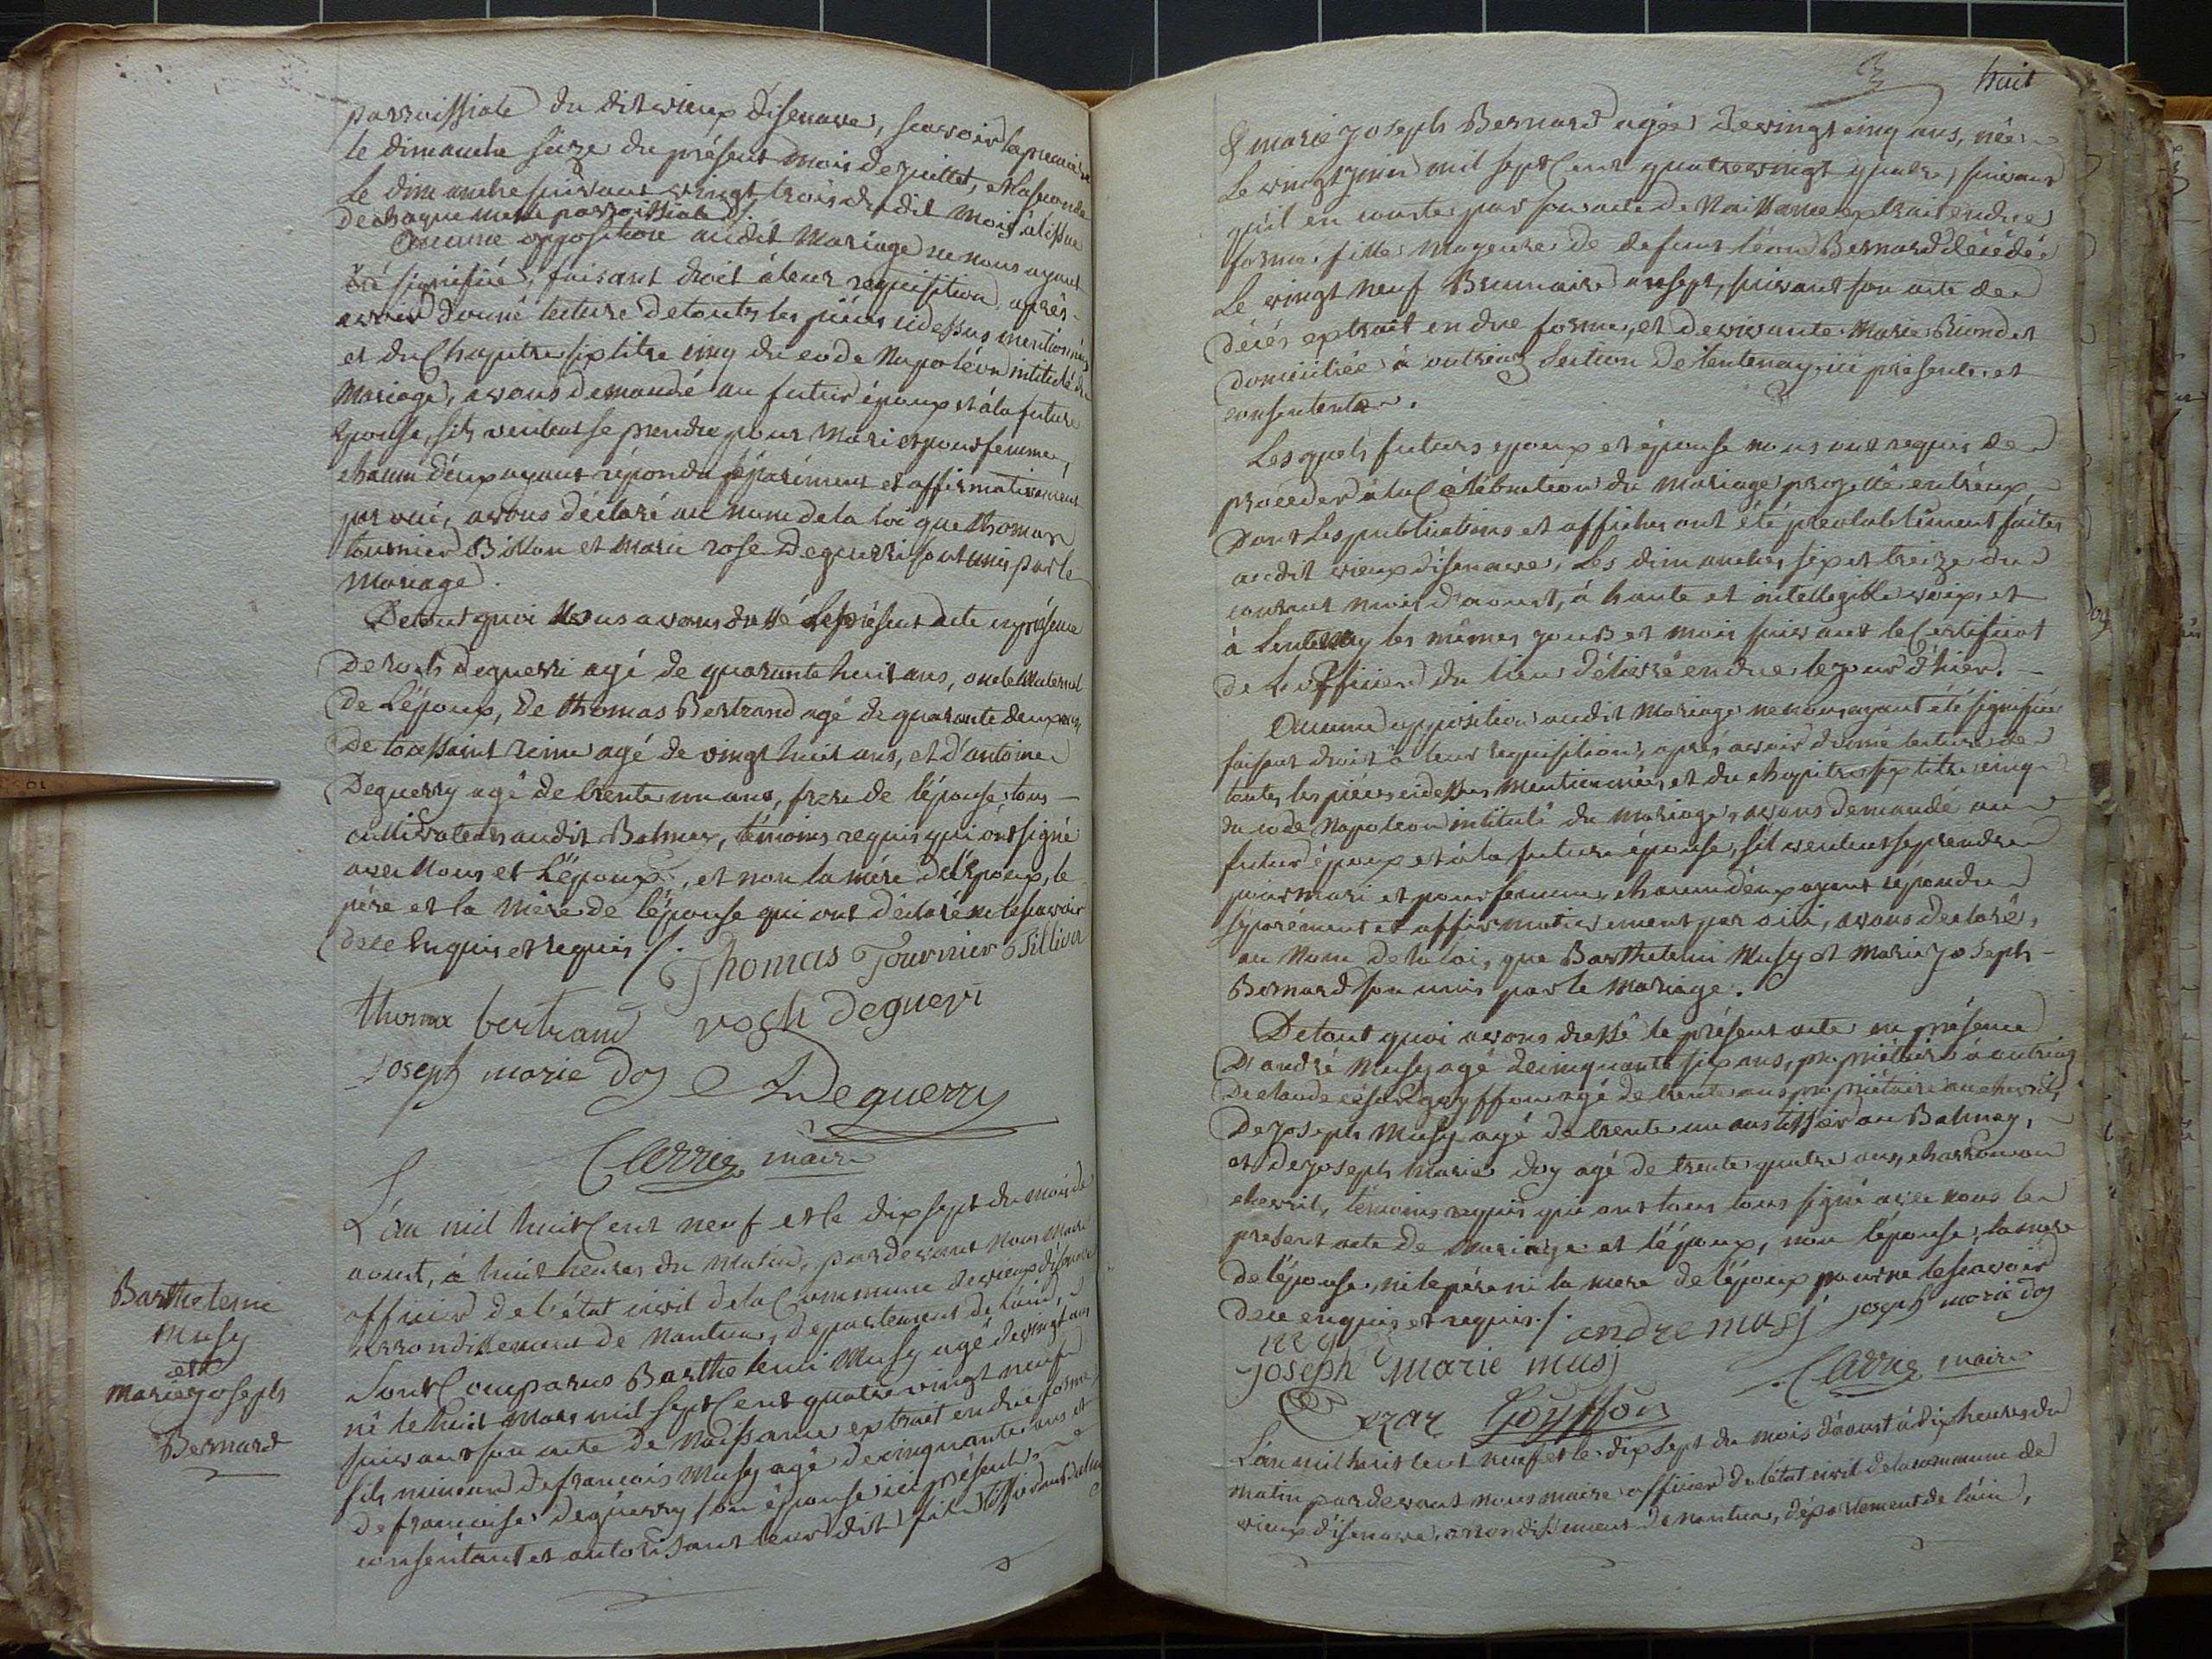 parroissiale du dit vieux disenave, scavoir la premiere
le dimanche seize du présent mois de juillet, et la seconde
le dimanche suivant vingt trois du dit mois à l'issue
de chaque messe parroissiale
Aucune opposition audit Mariage ne nous ayant
été signifiée, faisant droit à leur requisition, après
avoir donné lecture de toutes les pièces cidessus mentionnées
et du Chapitre six titre cinq du code Napoléon intitulé du
Mariage, avons demandé au futur époux et à la future
Epouse, s'ils veulent se prendre pour Mari et pour femme,
chacun d'eux ayant répondu séparément et affirmativement
par oui, avons déclaré au nom de la loi que thomas
tournier Billon et Marie rose Deguerri sont unis par le
Mariage.
De tout quoi Nous avons dressé le présent acte en présence
de roch deguerri agé de quarante huit ans, oncle Maternel
de l'époux, de thomas Bertrand agé de quarante deux ans,
de toussaint agé de vingt huit ans, et d'antoine
Deguerry agé de trente un ans, frere de l'épouse, tous
cultivateurs audit Balmay, témoins requis qui ont signé
avec Nous et L'époux, et non la mére de l'époux, le
pére et la mére de l'épouse qui ont déclaré ne le scavoir
de ce Enquis et requis ./.
Thomas Tournier Billion
thomas bertrand roch deguerri
joseph marie doy A Deguerry
Clerrier maire
L'an mil huit Cent neuf et le dix sept du mois de
aoust, à huit heures du Matin, pardevant Nous Maire
officier de l'état civil de la Commune de vieux d'isenave
arrondissement de Nantua, département de l'ain,
Sont Comparus Barthelemi Musy agé de vingt ans
né le huit Mars mil sept Cent quatre vingt neuf
suivant son acte de Naissance extrait en due forme,
fils mineur de francois Musy agé de cinquante ans et
de francoise deguerry son épouse ici présents,
consentant et autorisant leur dit fils
Barthelemi
Musy
et
Marie joseph
Bernard
huit
& marie joseph Bernard agée de vingt cinq ans, née
Le vingt juin mil sept Cent quatre vingt quatre, suivant
qu'il en conste par son acte de Naissance extrait en due
forme, fille Majeure de defunt léon Bernard décédé
Le vingt neuf Brumaire an sept, suivant son acte de
décés extrait en due forme, et de vivante Marie Biondet
domiciliée à outriaz section de lentenay, ici présente et
consentente.
Lesquels futurs epoux et épouse nous ont requis de
procéder à la Célébration du Mariage projetté entr'eux,
dont les publications et affiches ont été prealablement faites
audit vieux d'isenave, les dimanches six et treize du
courant mois d'aoust, à haute et intellegible voix, et
à Lentenay les mêmes jours et mois suivant le Certificat
de L'officier du lieu délivré en due le jour d'hier.
Aucune opposition audit Mariage ne nous ayant été signifiée
faisant droit à leur requisition, après avoir donné lecture de
toutes les piéces cidessus Mentionnées, et du chapitre six titre cinq
du code Napoleon intitulé du mariage, avons demandé au
futur époux et à la future épouse, s'il veulent se prendre
pour mari et pour femme, chacun d'eux ayant répondu
séparément et affirmativement par oui, avons declaré,
au Nom de la loi, que Barthelemi Musy et Marie joseph
Bernard son unis par le Mariage.
De tout quoi avons dressé le présent acte en présence
D'andré Musy agé de cinquante six ans, propriétaire à outriaz
de claude césar goyffon agé de trente ans propriétaire au chevril,
de joseph Musy agé de trente un ans tissier au Balmay,
et de joseph Marie doy agé de trente quatre ans, charron au
chevril, témoins requis qui ont tous signé avec nous le
présent acte de Mariage et l'époux, non l'épouse, la mere
de l'épouse, ni le pére ni la mere de l'époux pour ne le scavoir
de ce enquis et requis ./.
andre musy joseph marie doy
joseph marie musj
Clerrier maire
cezar Goyffon
L'an mil huit cent neuf et le dix sept du mois d'aoust à dix heures du
matin pardevant nous maire officier de l'état civil de la commune de
vieux d'isenave, arrondissement de nantua, département de l'ain,